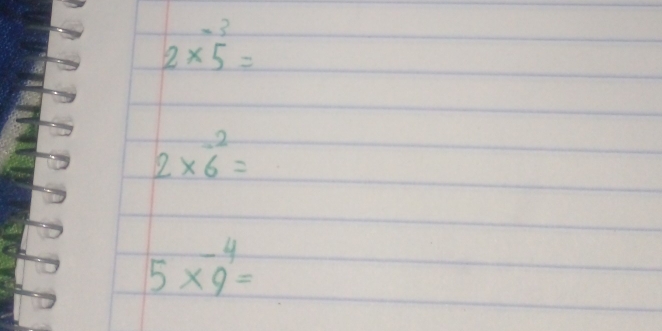 2 × 5⁻³ =
2 × 6⁻² =
5 × 9⁻⁴ =